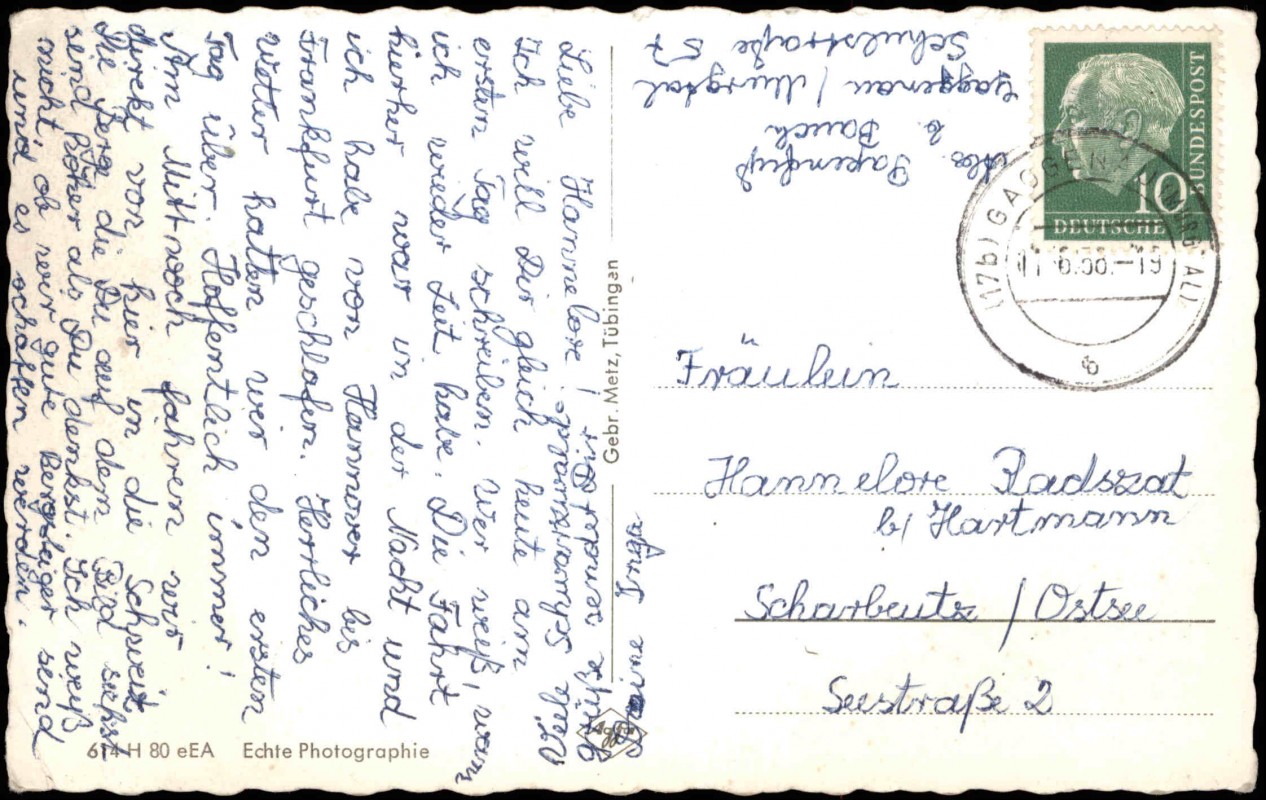 Liebe Hannelore!
Ich will Dir gleich heute am
ersten Tag schreiben. Wer weiß, wann
ich wieder Zeit habe. Die Fahrt
hierher war in der Nacht und
ich habe von Hannover bis
Frankfurt geschlafen. Herrliches
Wetter hatten wir den ersten
Tag über. Hoffentlich immer!
Am Mittwoch fahren wir
direkt von hier in die Schweiz.
Die Berge die Du auf dem Bild siehst
sind höher als Du denkst. Ich weiß
nicht, ob wir gute Bergsteiger sind
und es schaffen werden.
Noch
Grüße
Deine Inge
Abs.
b. Bauch
Gaggenau / Murgtal
Schulstraße 57
Gebr. Metz, Tübingen
Agfa
614 H 80 eEA Echte Photographie
BUNDESPOST
10
DEUTSCHE
(17b) GAGGENAU (MURGTAL)
-19
b
Fräulein
Hannelore Radszat
b/ Hartmann
Scharbeutz / Ostsee
Seestraße 2